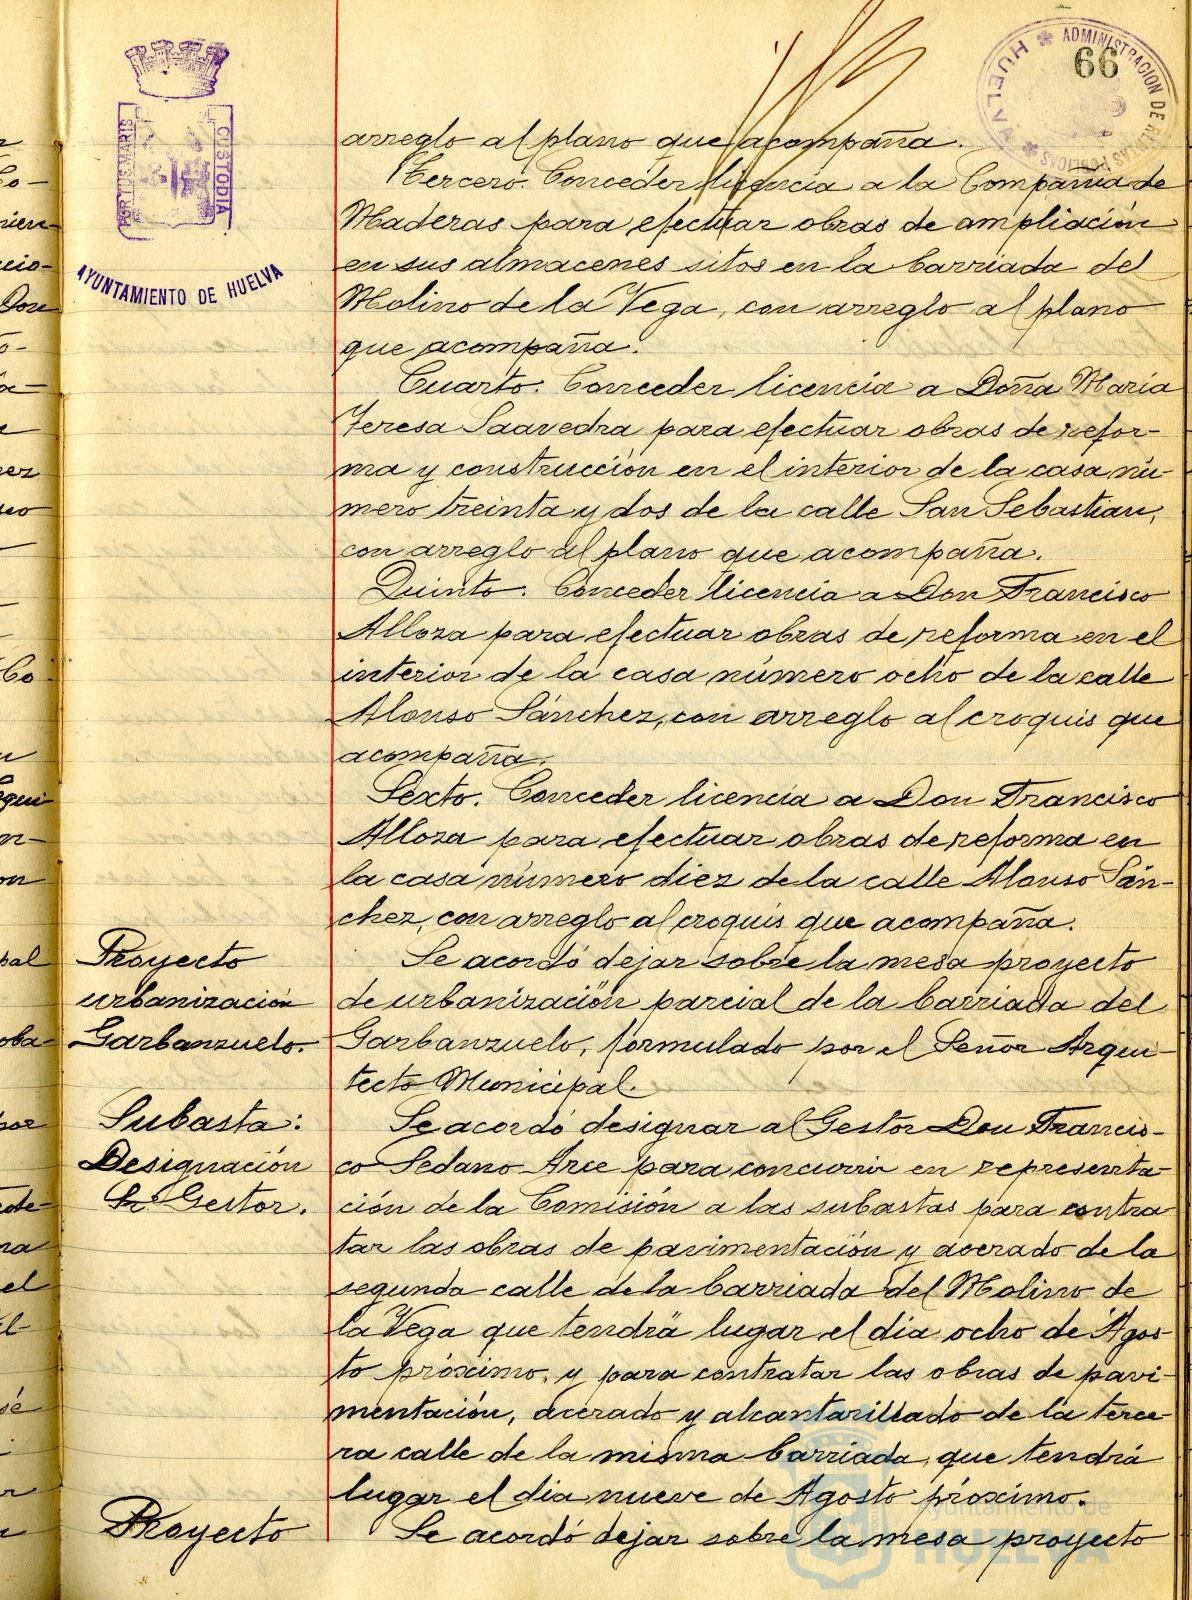 66
ADMINISTRACION DE RENTAS PUBLICAS
HUELVA
PORTUS MARIS
CUSTODIA
AYUNTAMIENTO DE HUELVA
arreglo al plano que acompaña.
Tercero. Conceder licencia a la Compañia de
Maderas para efectuar obras de ampliación
en sus almacenes sitos en la barriada del
Molino de la Vega, con arreglo al plano
que acompaña.
Cuarto. Conceder licencia a Doña Maria
Teresa Saavedra para efectuar obras de refor-
ma y construcción en el interior de la casa nú-
mero treinta y dos de la calle San Sebastian,
con arreglo al plano que acompaña.
Quinto. Conceder licencia a Don Francisco
Alloza para efectuar obras de reforma en el
interior de la casa número ocho de la calle
Alonso Sánchez, con arreglo al croquis que
acompaña.
Sexto. Conceder licencia a Don Francisco
Alloza para efectuar obras de reforma en
la casa número diez de la calle Alonso Sán-
chez, con arreglo al croquis que acompaña.
Proyecto
urbanización
Garbanzuelo.
Se acordó dejar sobre la mesa proyecto
de urbanización parcial de la barriada del
Garbanzuelo, formulado por el Señor Arqui-
tecto Municipal.
Subasta:
Designación
Gestor.
Se acordó designar al Gestor Don Francis-
co Sedano Arce para concurrir en representa-
ción de la Comisión a las subastas para contra
tar las obras de pavimentación y acerado de la
segunda calle de la barriada del Molino de
la Vega que tendrá lugar el dia ocho de Agos-
to próximo, y para contratar las obras de pavi-
mentación, acerado y alcantarillado de la terce
ra calle de la misma barriada, que tendrá
lugar el dia nueve de Agosto próximo.
Proyecto
Se acordó dejar sobre la mesa proyecto
Ayuntamiento de
HUELVA